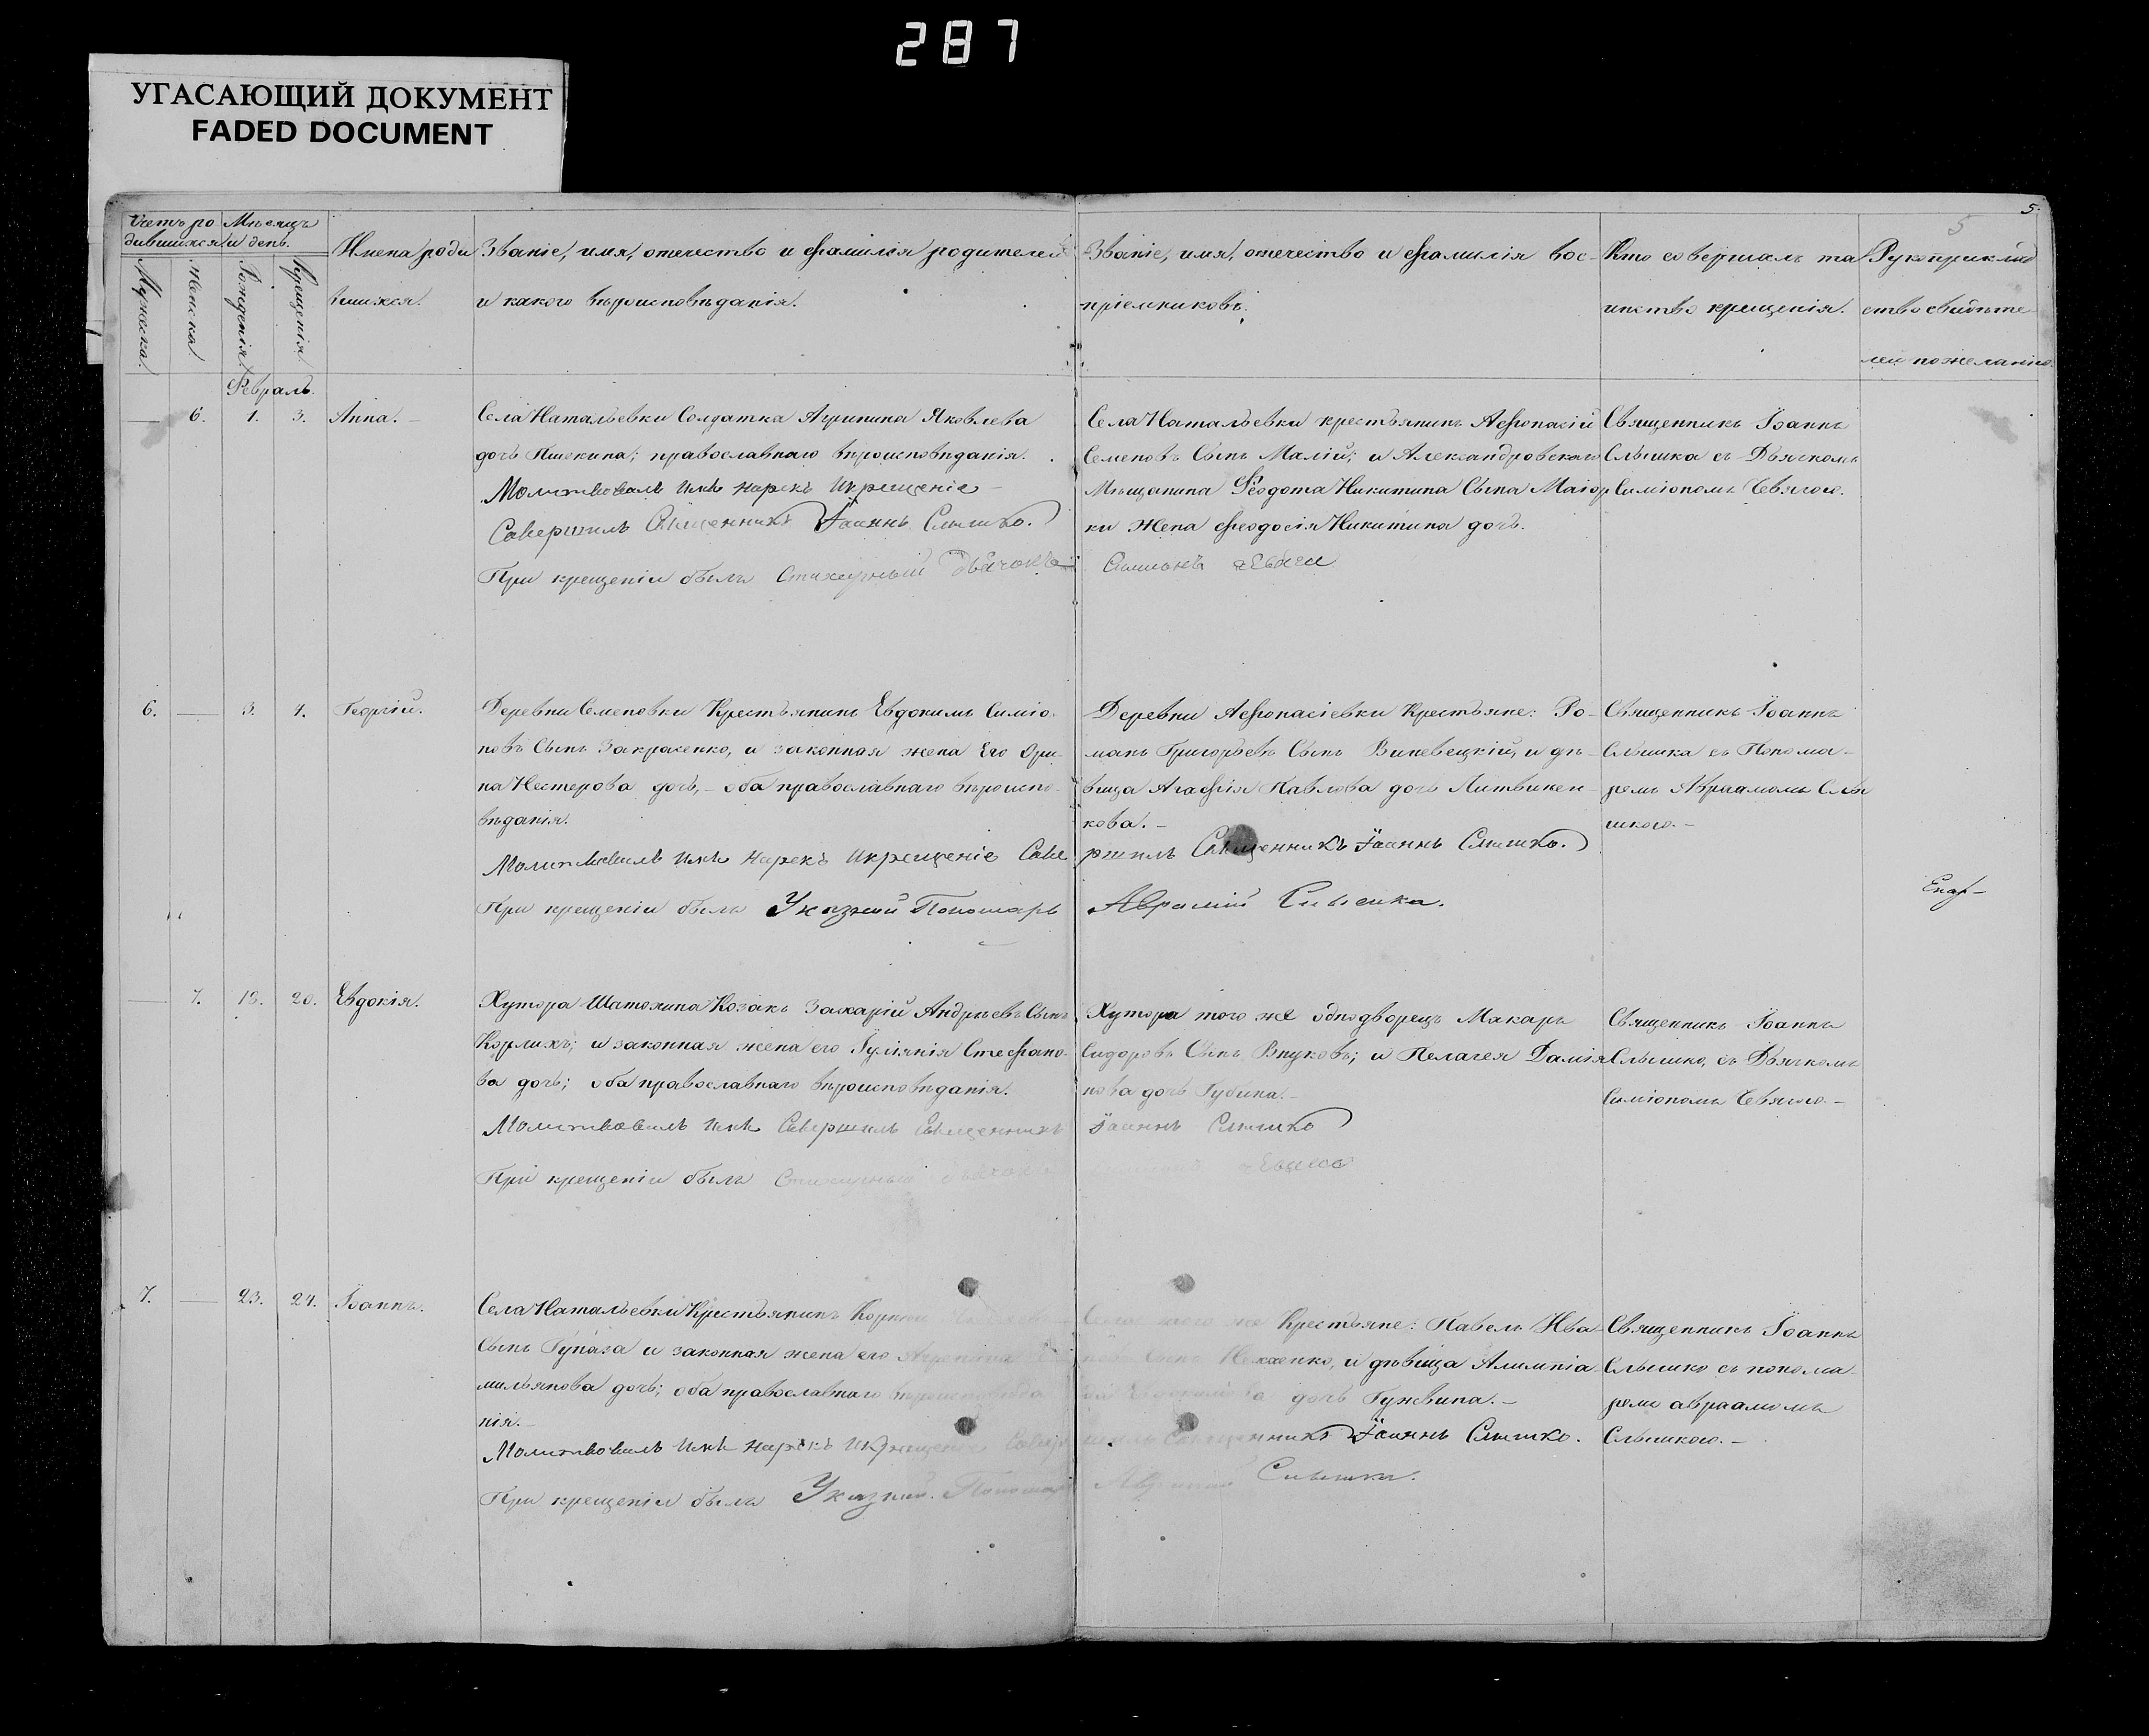 287
УГАСАЮЩИЙ ДОКУМЕНТ
FADED DOCUMENT
5.
5
Счетъ ро
дившихся
Мѣсяцъ
и день.
Мужеска.
Женска.
Рожденія.
Крещенія.
Имена роди
вшихся.
Званіе, имя, отечество и фамилія родителей
и какого вѣроисповѣданія.
Званіе, имя, отечество и фамилія вос-
пріемниковъ.
Кто совершалъ та
инство крещенія.
Рукоприклад
ство свидѣте
лей по желанію.
Февраль.
— 6. 1. 3. Анна. —
Села Натальевки Солдатка Агрипина Яковлева
дочь Пшекина; православнаго вѣроисповѣданія.
Молитвовалъ имя нарекъ икрещеніе
Совершилъ Священникъ Іоаннъ Слышко.
При крещеніи былъ Стихарный Дьячокъ
Села Натальевки крестьянинъ Афонасій
Семеновъ Сынъ Малій; и Александровскаго
Мѣщанина Ѳеодота Никитина Сына Маіор
ки Жена Феодосія Никитина дочь.
Священникъ Іоаннъ
Слышка съ Дьячкомъ
Симіономъ
6. — 3. 4. Георгій.
Деревни Семеновки Крестьянинъ Евдокимъ Симіо-
новъ Сынъ Закрасенко, и законная жена Его Ори-
на Нестерова дочь, — оба православнаго вѣроиспо-
вѣданія.
Молитвовалъ имя нарекъ икрещеніе Сове
При крещеніи былъ Указный Пономарь
Деревни Афонасіевки Крестьяне: Ро-
манъ Григорьевъ Сынъ Виневецкій, и дѣ-
вица Агафія Павлова дочь Литвинен-
кова. —
ршилъ Священникъ Іоаннъ Слышко.
Аврамій Слышка.
Священникъ Іоаннъ
Слышка съ Понома-
ремъ Авраамомъ Слы
шкою. —
— 7. 20. Евдокія.
Хутора Шатохина Козакъ Захарій Андрѣевъ Сынъ
Корлихъ; и законная жена его Іуліянія Стефано-
ва дочь; оба православнаго вѣроисповѣданія.
Молитвовалъ имя Совершилъ Священникъ
При крещеніи былъ Стихарный Дьячокъ
Хутора того же однодворецъ Макаръ
Сидоровъ Сынъ Внуковъ; и Пелагея Даміа
нова дочь Губина. —
Іоаннъ Слышко
Священникъ Іоаннъ
Слышко, съ Дьячкомъ
Симіономъ
7. — 23. 24. Іоаннъ.
Села Натальевки Крестьянинъ
Сынъ Гупаза и законная жена его Агрепина
мильянова дочь; оба православнаго вѣроисповѣда
нія. —
Молитвовалъ имя нарекъ икрещеніе Совер
При крещеніи былъ Указный Пономарь
Села того же Крестьяне: Павелъ Ива
новъ Сынъ и дѣвица Алимпіа
дочь Гужвина. —
шилъ Священникъ Іоаннъ Слышко.
Аврамій Слышка.
Священникъ Іоаннъ
Слышко съ понома-
ремъ авраамомъ
Слышкою. —